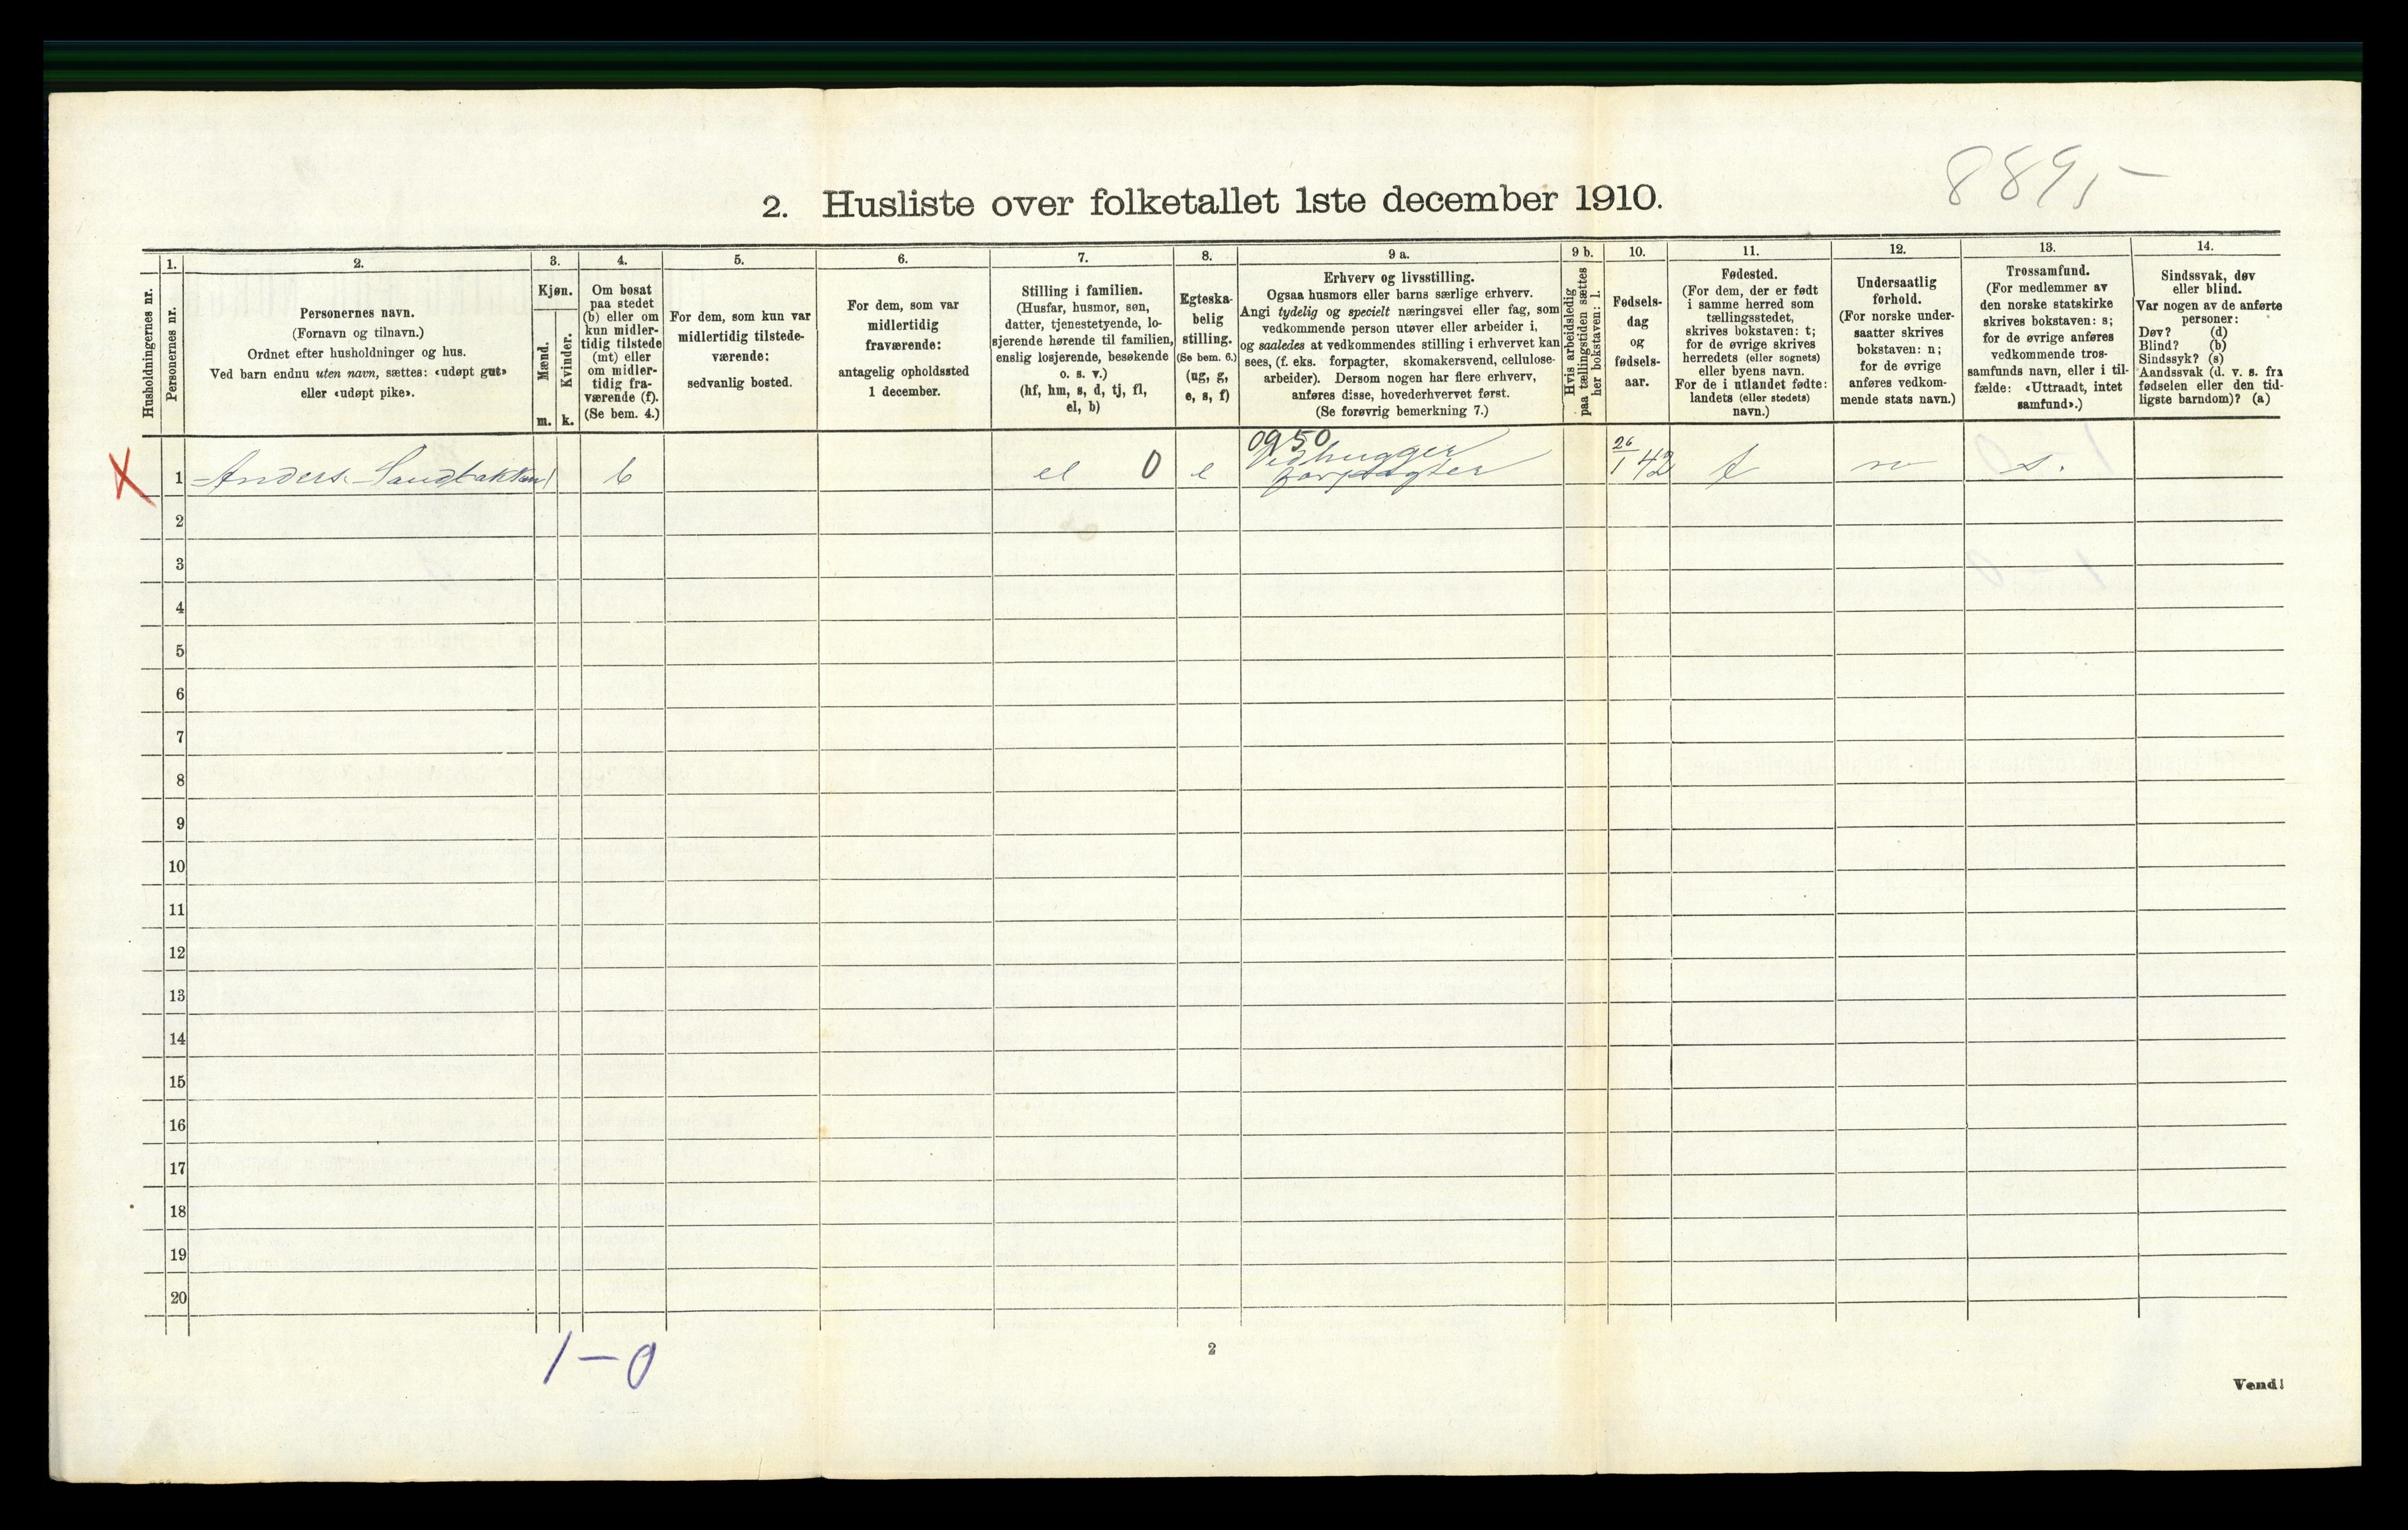 8895-
2. Husliste over folketallet 1ste december 1910.
Husholdningernes nr.
1.
Personernes nr.
2.
Personernes navn.
(Fornavn og tilnavn.)
Ordnet efter husholdninger og hus.
Ved barn endnu uten navn, sættes: «udøpt gut»
eller «udøpt pike».
3.
Kjøn.
Mænd.
m.
Kvinder.
k.
4.
Om bosat
paa stedet
(b) eller om
kun midler-
tidig tilstede
(mt) eller
om midler-
tidig fra-
værende (f).
(Se bem. 4.)
5.
For dem, som kun var
midlertidig tilstede-
værende:
sedvanlig bosted.
6.
For dem, som var
midlertidig
fraværende:
antagelig opholdssted
1 december.
7.
Stilling i familien.
(Husfar, husmor, søn,
datter, tjenestetyende, lo-
sjerende hørende til familien,
enslig losjerende, besøkende
o. s. v.)
(hf, hm, s, d, tj, fl,
el, b)
8.
Egteska-
belig
stilling.
(Se bem. 6.)
(ug, g,
e, s, f)
9 a.
Erhverv og livsstilling.
Ogsaa husmors eller barns særlige erhverv.
Angi tydelig og specielt næringsvei eller fag, som
vedkommende person utøver eller arbeider i,
og saaledes at vedkommendes stilling i erhvervet kan
sees, (f. eks. forpagter, skomakersvend, cellulose-
arbeider). Dersom nogen har flere erhverv,
anføres disse, hovederhvervet først.
(Se forøvrig bemerkning 7.)
9 b.
Hvis arbeidsledig
paa tællingstiden sættes
her bokstaven: l.
10.
Fødsels-
dag
og
fødsels-
aar.
11.
Fødested.
(For dem, der er født
i samme herred som
tællingsstedet,
skrives bokstaven: t;
for de øvrige skrives
herredets (eller sognets)
eller byens navn.
For de i utlandet fødte:
landets (eller stedets)
navn.)
12.
Undersaatlig
forhold.
(For norske under-
saatter skrives
bokstaven: n;
for de øvrige
anføres vedkom-
mende stats navn.)
13.
Trossamfund.
(For medlemmer av
den norske statskirke
skrives bokstaven: s;
for de øvrige anføres
vedkommende tros-
samfunds navn, eller i til-
fælde: «Uttraadt, intet
samfund».)
14.
Sindssvak, døv
eller blind.
Var nogen av de anførte
personer:
Døv? (d)
Blind? (b)
Sindssyk? (s)
Aandssvak (d. v. s. fra
fødselen eller den tid-
ligste barndom)? (a)
X 1 Anders Sandbakken 1 b el 0 e 0950 Vedhugger forpagter 26/1 42 t n s.
2
3
4
5
6
7
8
9
10
11
12
13
14
15
16
17
18
19
20
1-0
2
Vend!